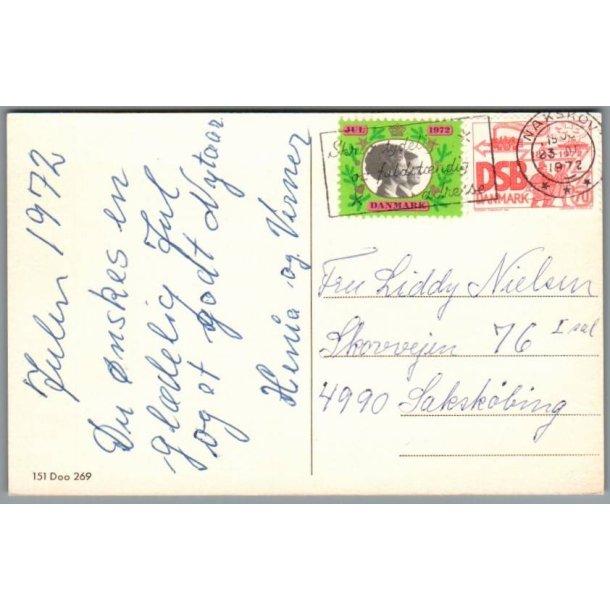 Julen 1972
Du ønskes en
glædelig Jul
og et godt Nytaar
Henia og Verner
151 Doo 269
JUL 1972
DANMARK
Skriv tydelig
og fuldstændig
adresse
NAKSKOV
1972
DSB
DANMARK 70
Fru Liddy Nielsen
Skovvejen 76 I sal
4990 Sakskøbing